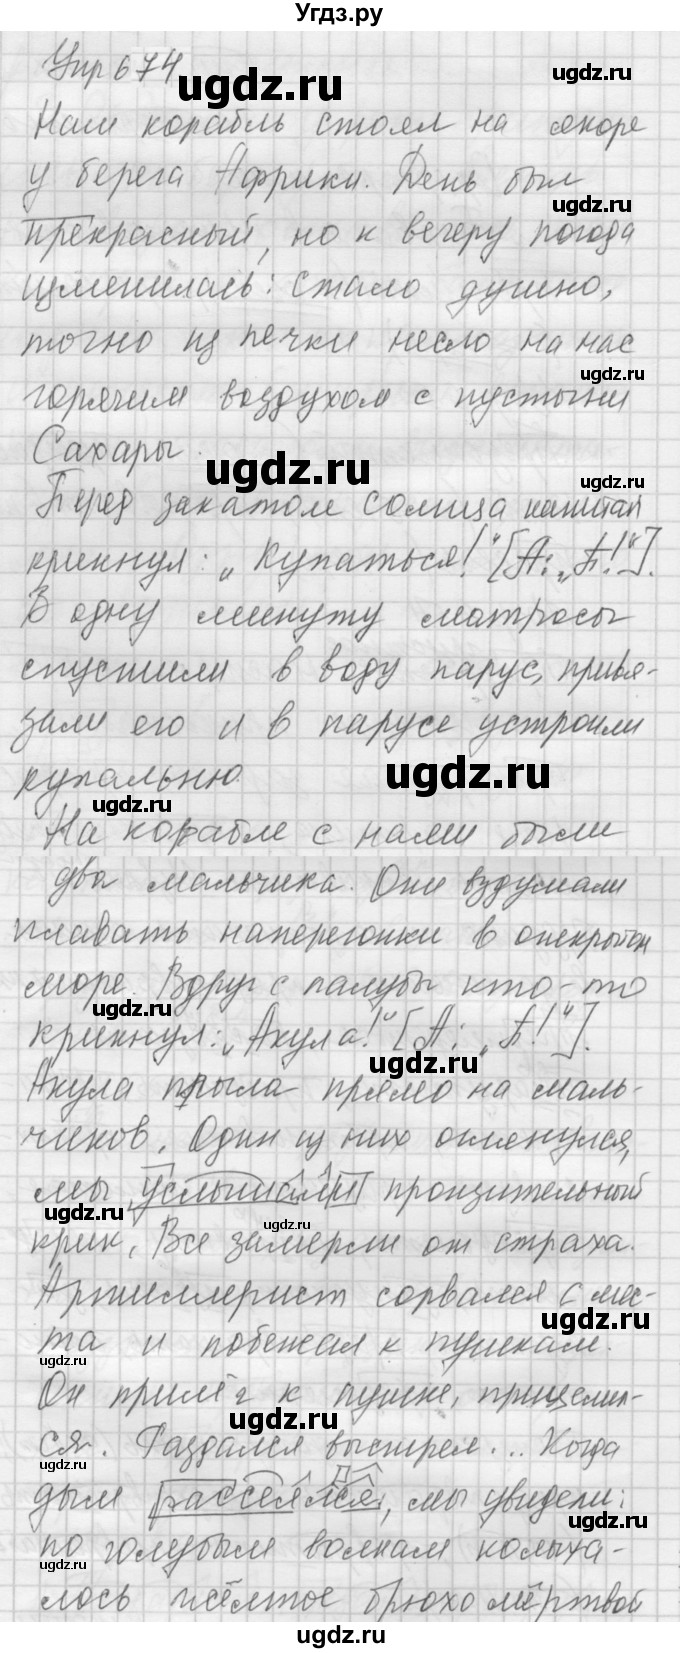 Угдз.ру
Упр 674
ugdz.ru
ugdz.ru
Наш корабль стоял на якоре
у берега Африки. День был
ugdz.ru
прекрасный, но к вечеру погода
изменилась: стало душно,
точно из печки несло на нас
ugdz.ru
горячим воздухом с пустыни
Сахары.
ugdz.ru
ugdz.ru
Перед закатом солнца капитан
крикнул: „Купаться!" [А: „П!"].
В одну минуту матросы
спустили в воду парус, привя-
зали его и в парусе устроили
ugdz.ru
купальню
ugdz.ru
На корабле с нами были
два мальчика. Они вздумали
плавать наперегонки в открытом
море. Вдруг с палубы кто-то
ugdz.ru
крикнул: „Акула!" [А: „П!"].
ugdz.ru
Акула плыла прямо на маль-
чиков. Один из них оглянулся,
мы услышали пронзительный
ugdz.ru
ugdz.ru
крик. Все замерли от страха.
Артиллерист сорвался с мес-
ugdz.ru
та и побежал к пушкам.
ugdz.ru
Он прилёг к пушке, прицелил-
ugdz.ru
ся. Раздался выстрел... Когда
ugdz.ru
дым рассеялся, мы увидели:
ugdz.ru
по голубым волнам колыха-
ugdz.ru
лось жёлтое брюхо мёртвой
ugdz.ru